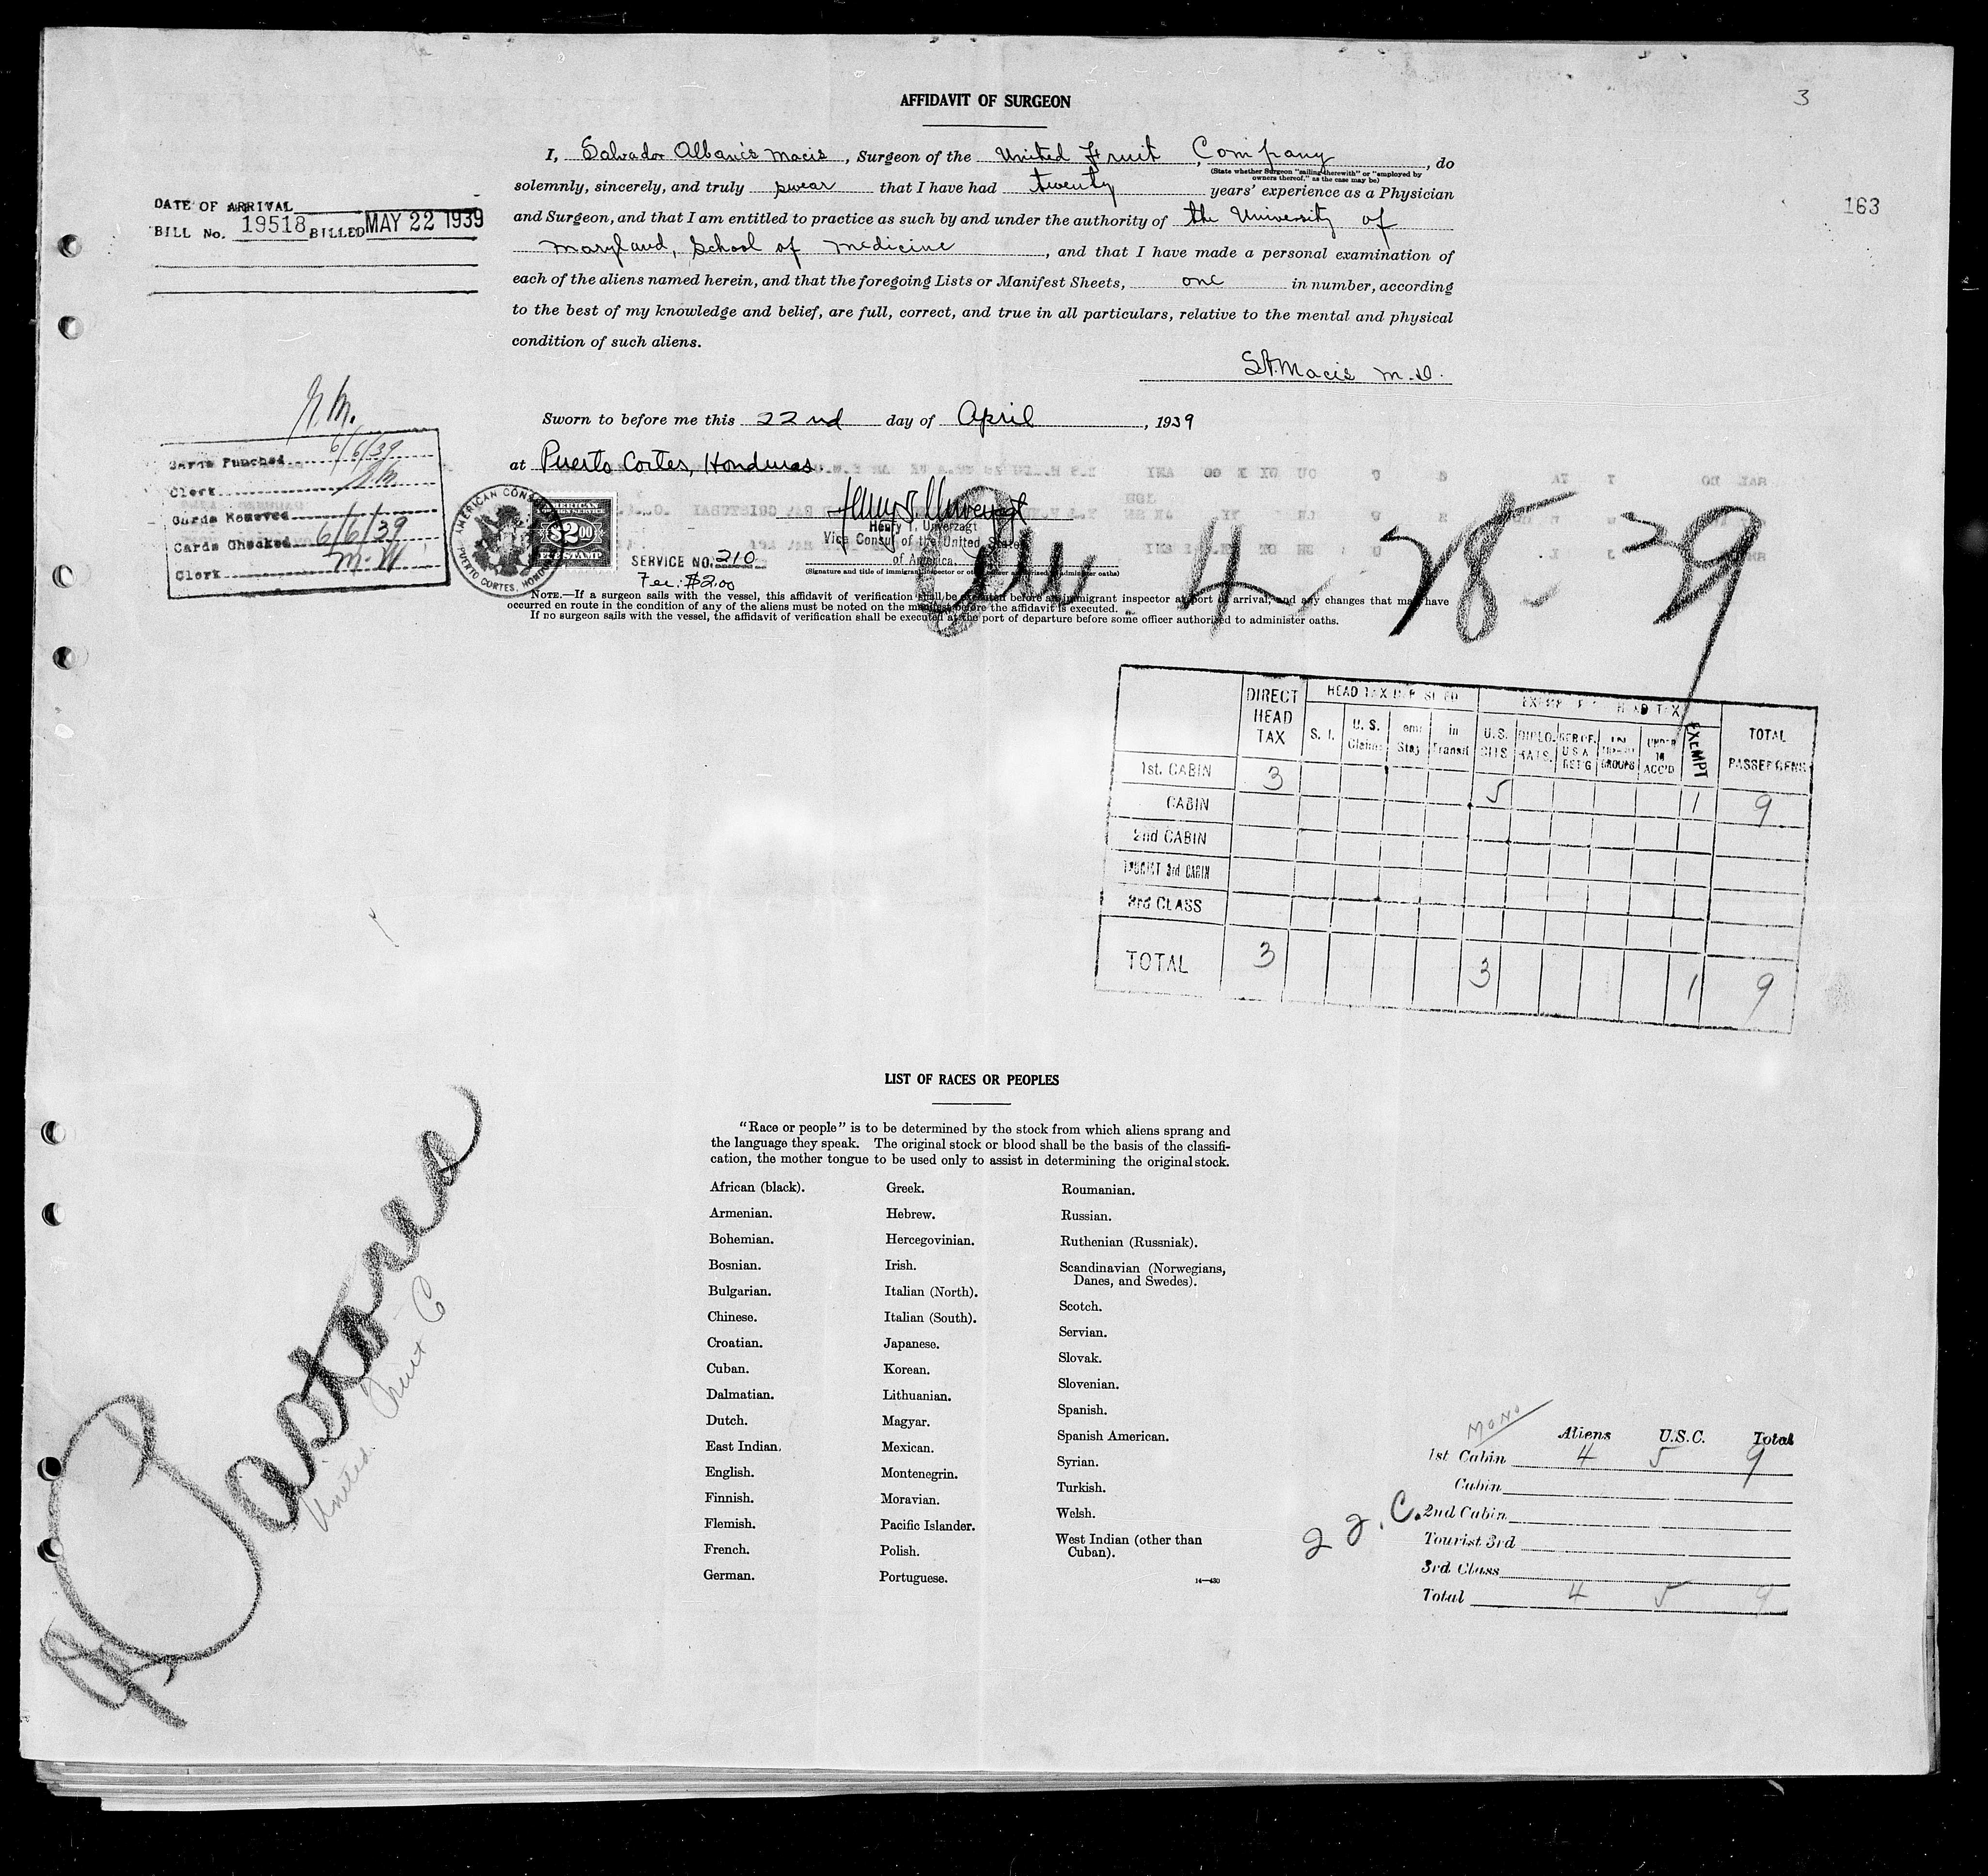 3
163
AFFIDAVIT OF SURGEON
I, Salvador Albanis Macis, Surgeon of the United Fruit Company, do
(State whether Surgeon "sailing therewith" or "employed by
owners thereof," as the case may be)
solemnly, sincerely, and truly swear that I have had twenty years' experience as a Physician
and Surgeon, and that I am entitled to practice as such by and under the authority of the University of
Maryland, School of Medicine, and that I have made a personal examination of
each of the aliens named herein, and that the foregoing Lists or Manifest Sheets, one in number, according
to the best of my knowledge and belief, are full, correct, and true in all particulars, relative to the mental and physical
condition of such aliens.
S.A. Macis M.D.
Sworn to before me this 22nd day of April, 1939
at Puerto Cortes, Honduras
DATE OF ARRIVAL
BILL No. 19518 BILLED MAY 22 1939
Cards Punched 6/6/39
Clerk
Cards Removed
Cards Checked 6/6/39
Clerk M. W.
AMERICAN CONSULATE
PUERTO CORTES, HONDURAS
AMERICAN
FOREIGN SERVICE
$2.00
FEE STAMP
SERVICE NO. 210
Fee: $2.00
Henry T. Unverzagt
Henry T. Unverzagt
Vice Consul of the United States
of America.
(Signature and title of immigrant inspector or other officer authorized to administer oaths)
4-28-39
NOTE.—If a surgeon sails with the vessel, this affidavit of verification shall be executed before an immigrant inspector at port of arrival, and any changes that may have
occurred en route in the condition of any of the aliens must be noted on the manifest before the affidavit is executed.
If no surgeon sails with the vessel, the affidavit of verification shall be executed at the port of departure before some officer authorized to administer oaths.
DIRECT HEAD TAX
HEAD TAX DEPOSITED
EXEMPT FROM HEAD TAX
TOTAL PASSENGERS
S. I.
U. S. Claims
Stay
in Transit
U.S. CITS
DIPLOMATS.
U S A RET'G
GROUPS
UNDER 16 ACC'D
EXEMPT
1st. CABIN 3 5 1 9
CABIN
2nd CABIN
TOURIST 3rd CABIN
3rd CLASS
TOTAL 3 3 1 9
LIST OF RACES OR PEOPLES
"Race or people" is to be determined by the stock from which aliens sprang and
the language they speak. The original stock or blood shall be the basis of the classifi-
cation, the mother tongue to be used only to assist in determining the original stock.
African (black).
Armenian.
Bohemian.
Bosnian.
Bulgarian.
Chinese.
Croatian.
Cuban.
Dalmatian.
Dutch.
East Indian.
English.
Finnish.
Flemish.
French.
German.
Greek.
Hebrew.
Hercegovinian.
Irish.
Italian (North).
Italian (South).
Japanese.
Korean.
Lithuanian.
Magyar.
Mexican.
Montenegrin.
Moravian.
Pacific Islander.
Polish.
Portuguese.
Roumanian.
Russian.
Ruthenian (Russniak).
Scandinavian (Norwegians,
Danes, and Swedes).
Scotch.
Servian.
Slovak.
Slovenian.
Spanish.
Spanish American.
Syrian.
Turkish.
Welsh.
West Indian (other than
Cuban).
14—430
Pastores
United Fruit C
Mono
Aliens U.S.C. Total
1st Cabin 4 5 9
Cabin
2nd Cabin
Tourist 3rd
3rd Class
Total 4 5 9